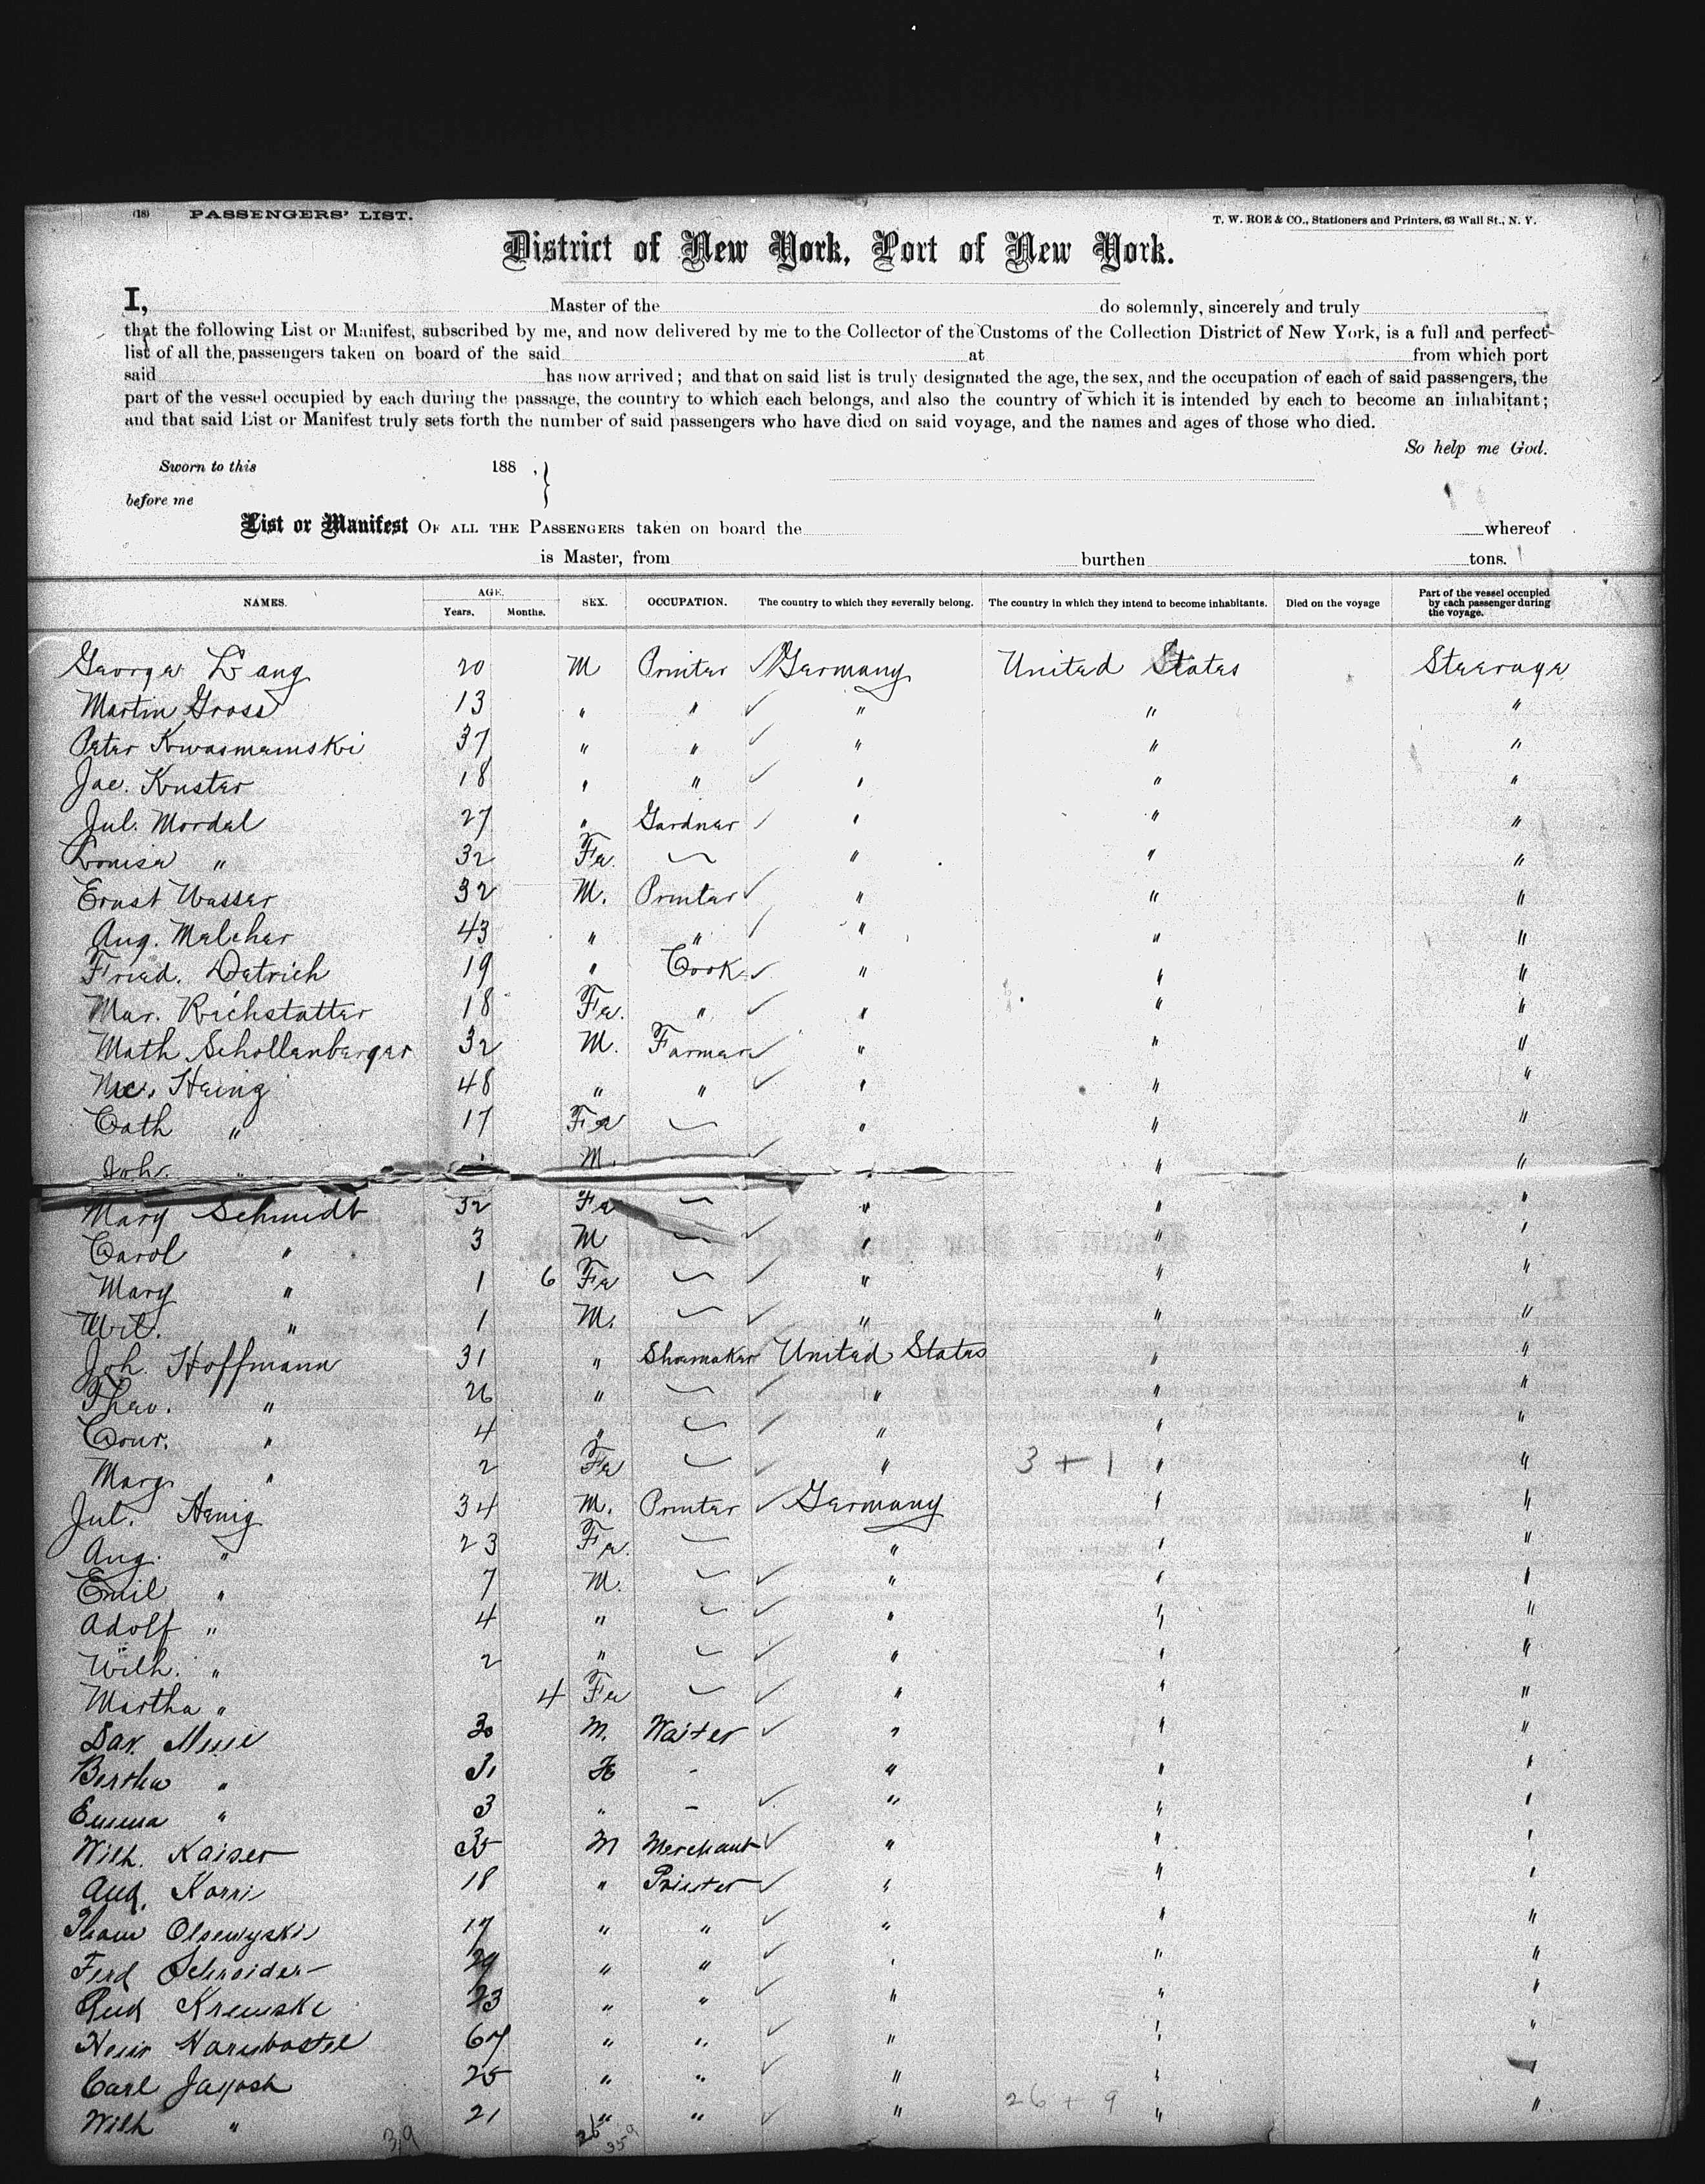 (18) PASSENGERS' LIST.
T. W. ROE & CO., Stationers and Printers, 63 Wall St., N. Y.
District of New York, Port of New York.
I, Master of the do solemnly, sincerely and truly
that the following List or Manifest, subscribed by me, and now delivered by me to the Collector of the Customs of the Collection District of New York, is a full and perfect
list of all the passengers taken on board of the said at from which port
said has now arrived; and that on said list is truly designated the age, the sex, and the occupation of each of said passengers, the
part of the vessel occupied by each during the passage, the country to which each belongs, and also the country of which it is intended by each to become an inhabitant;
and that said List or Manifest truly sets forth the number of said passengers who have died on said voyage, and the names and ages of those who died.
So help me God.
Sworn to this 188 , }
before me
List or Manifest OF ALL THE PASSENGERS taken on board the whereof
is Master, from burthen tons.
NAMES. AGE. Years. Months. SEX. OCCUPATION. The country to which they severally belong. The country in which they intend to become inhabitants. Died on the voyage Part of the vessel occupied by each passenger during the voyage.
George Lang 20 M Printer Germany United States Steerage
Martin Gross 13 " " " " "
Peter 37 " " " " "
Jac. Kuster 18 " " " " "
Jul. Mordel 27 " Gardner " " "
Louise " 32 Fe. — " " "
Ernst Wasser 32 M. Printer " " "
Aug. Melcher 43 " " " " "
Fried. Detrich 19 " Cook " " "
Mar. Reichstatter 18 Fe. " " " "
Math Schollenberger 32 M. Farmer " " "
Nic. Heing 48 " " " " "
Cath " 17 Fe — " " "
Joh. " M. " " "
Mary Schmidt 32 Fe — " " "
Carol " 3 M — " " "
Mary " 1 6 Fe — " " "
Wil. " 1 M. — " " "
Joh. Hoffmann 31 " Shoemaker United States " "
Theo. " 26 " — " " "
Conr. " 4 " — " " "
Marg " 2 Fe — " 3 + 1 " "
Jul. Henig 34 M. Printer Germany " "
Aug. " 23 Fe. — " " "
Emil " 7 M. — " " "
Adolf " 4 " — " " "
Wilh. " 2 " — " " "
Martha " 4 Fe — " " "
Dav. 30 M. Waiter " " "
Bertha " 31 Fe - " " "
Emma " 3 " - " " "
Wilh. Kaiser 35 M Merchant " " "
Aug. Korri 18 " Printer " " "
Olsewyski 17 " " " " "
Ferd Schneider 29 " " " " "
Rud Kremski 23 " " " " "
Heinr Harnbostel 67 " " " " "
Carl Jayosh 25 " " " " "
Wilh " 21 " " " 26 + 9 " "
39 26 35 9